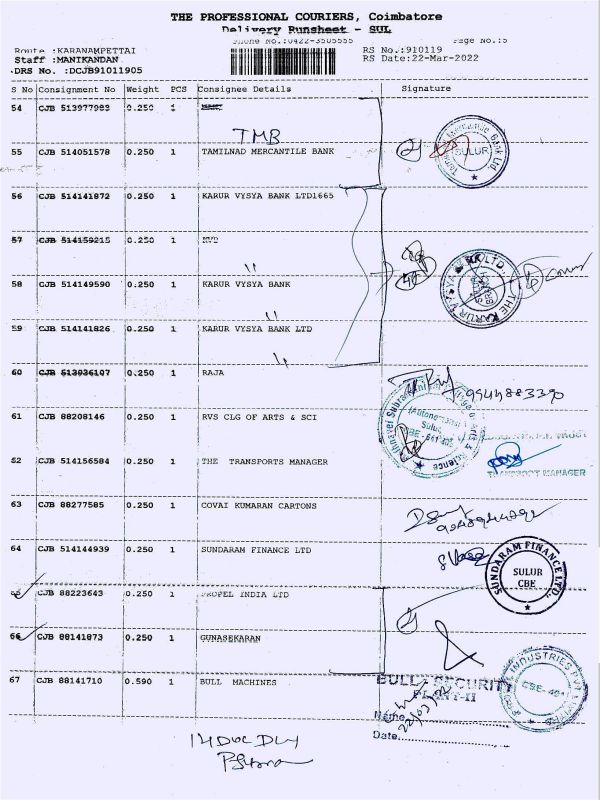 THE PROFESSIONAL COURIERS, Coimbatore
Delivery Runsheet - SUL
Phone No.:0422-3505555 Page No.:5
Route :KARANAMPETTAI RS No.:910119
Staff :MANIKANDAN RS Date:22-Mar-2022
DRS No. :DCJB91011905
S No Consignment No Weight PCS Consignee Details Signature
54 CJB 513977983 0.250 1
TMB
55 CJB 514051578 0.250 1 TAMILNAD MERCANTILE BANK
SULUR
56 CJB 514141872 0.250 1 KARUR VYSYA BANK LTD1665
57 CJB 514159215 0.250 1
58 CJB 514149590 0.250 1 KARUR VYSYA BANK
THE KARUR VYSYA BANK LTD.
59 CJB 514141826 0.250 1 KARUR VYSYA BANK LTD
60 CJB 513936107 0.250 1 RAJA
9944883390
61 CJB 88208146 0.250 1 RVS CLG OF ARTS & SCI
62 CJB 514156584 0.250 1 THE TRANSPORTS MANAGER
TRANSPORT MANAGER
63 CJB 88277585 0.250 1 COVAI KUMARAN CARTONS
64 CJB 514144939 0.250 1 SUNDARAM FINANCE LTD
SUNDARAM FINANCE LTD.
SULUR
CBE
65 CJB 88223643 0.250 1 PROPEL INDIA LTD
66 CJB 88141873 0.250 1 GUNASEKARAN
67 CJB 88141710 0.590 1 BULL MACHINES
BULL SECURITY
PLANT-II
Name
22/03/22
Date
14 Doc DLY